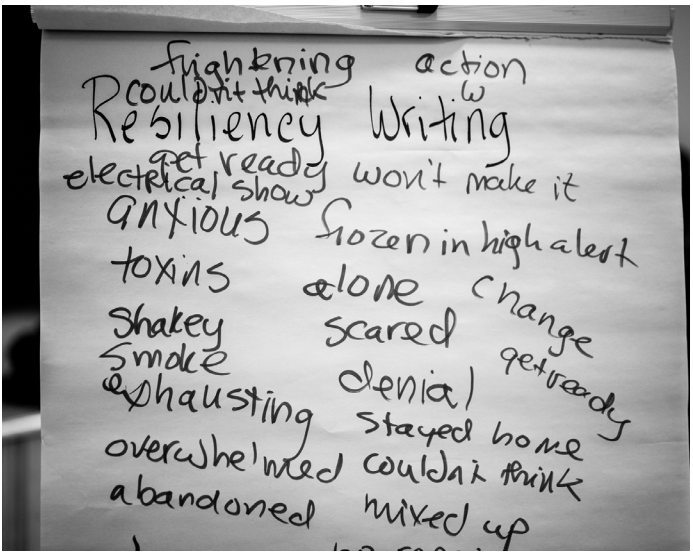 frightening action
couldn't think w
Resiliency Writing
get ready won't make it
electrical show
anxious frozen in high alert
toxins alone change
shakey scared get ready
smoke denial
exhausting stayed home
overwhelmed couldn't think
abandoned mixed up